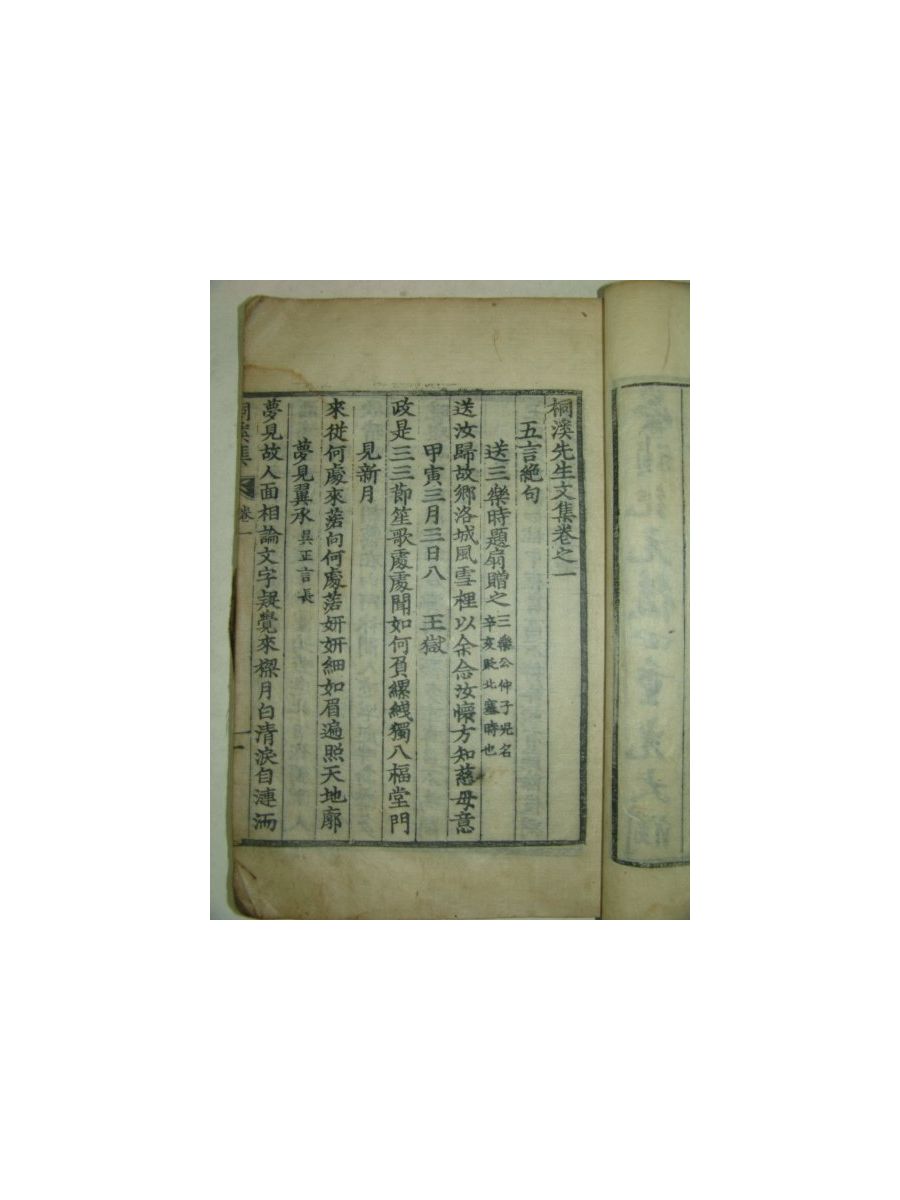 桐溪先生文集卷之一
五言絶句
送三樂時題扇贈之 三樂公仲子兒名
辛亥貶北塞時也
送汝歸故鄕洛城風雪裡以余念汝懷方知慈母意
甲寅三月三日入 王獄
政是三三節笙歌處處聞如何負縲絏獨入楅堂門
見新月
來從何處來落向何處落姸姸細如眉遍照天地廓
夢見翼承 吳正言長
夢見故人面相論文字疑覺來樑月白淸淚自漣洏
桐溪集 卷一 一